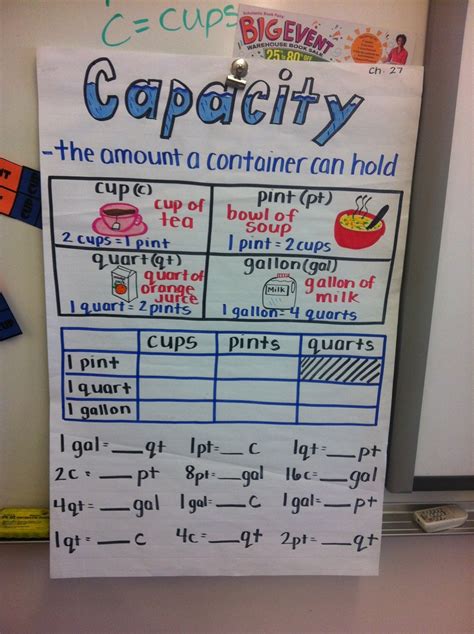 C = cups
Scholastic Book Fairs
BIG EVENT
WAREHOUSE BOOK SALE
25% to 80% off
Ch. 27
Capacity
-the amount a container can hold
cup (c)
cup of
tea
2 cups = 1 pint
pint (pt)
bowl of
soup
1 pint = 2 cups
quart (qt)
quart of
orange
juice
1 quart = 2 pints
gallon (gal)
Milk
gallon of
milk
1 gallon = 4 quarts
cups pints quarts
1 pint
1 quart
1 gallon
1 gal = __ qt 1pt = __ c 1qt = __ pt
2c = __ pt 8pt = __ gal 16c = __ gal
4qt = __ gal 1gal = __ c 1gal = __ pt
1qt = __ c 4c = __ qt 2pt = __ qt
CUP